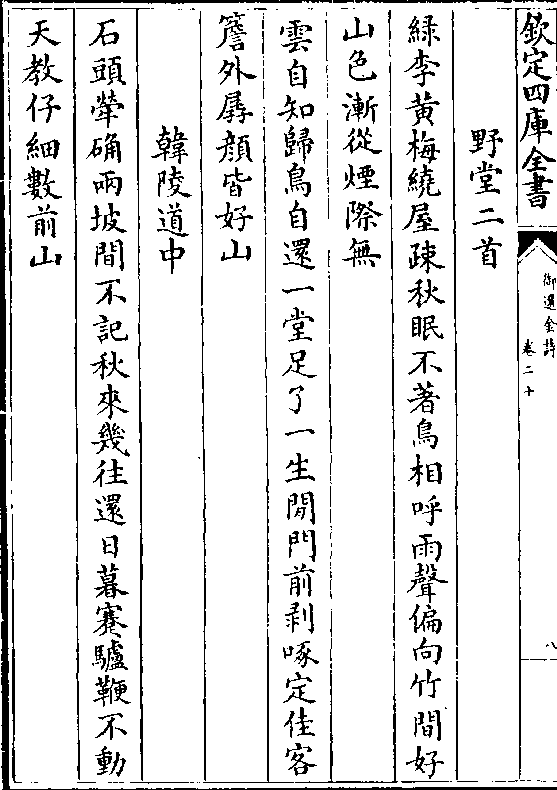 欽定四庫全書
御選金詩
卷二十
八
野堂二首
綠李黃梅繞屋疎秋眠不著鳥相呼雨聲偏向竹間好
山色漸從煙際無
雲自知歸鳥自還一堂足了一生閒門前剥啄定佳客
簷外孱顔皆好山
韓陵道中
石頭犖确兩坡間不記秋來幾往還日暮蹇驢鞭不動
天教仔細數前山